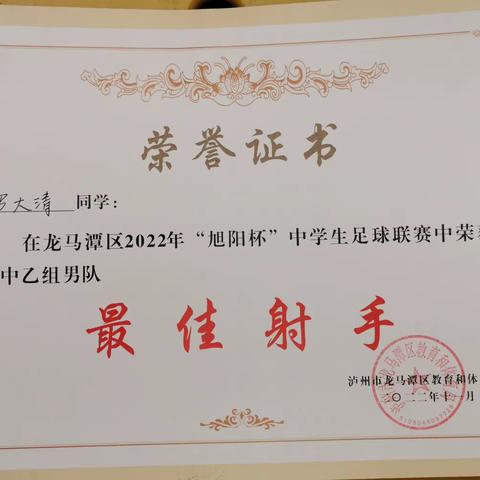 荣誉证书
罗大清 同学：
在龙马潭区2022年“旭阳杯”中学生足球联赛中荣
中乙组男队
最佳射手
泸州市龙马潭区教育和体
二〇二二年十一月